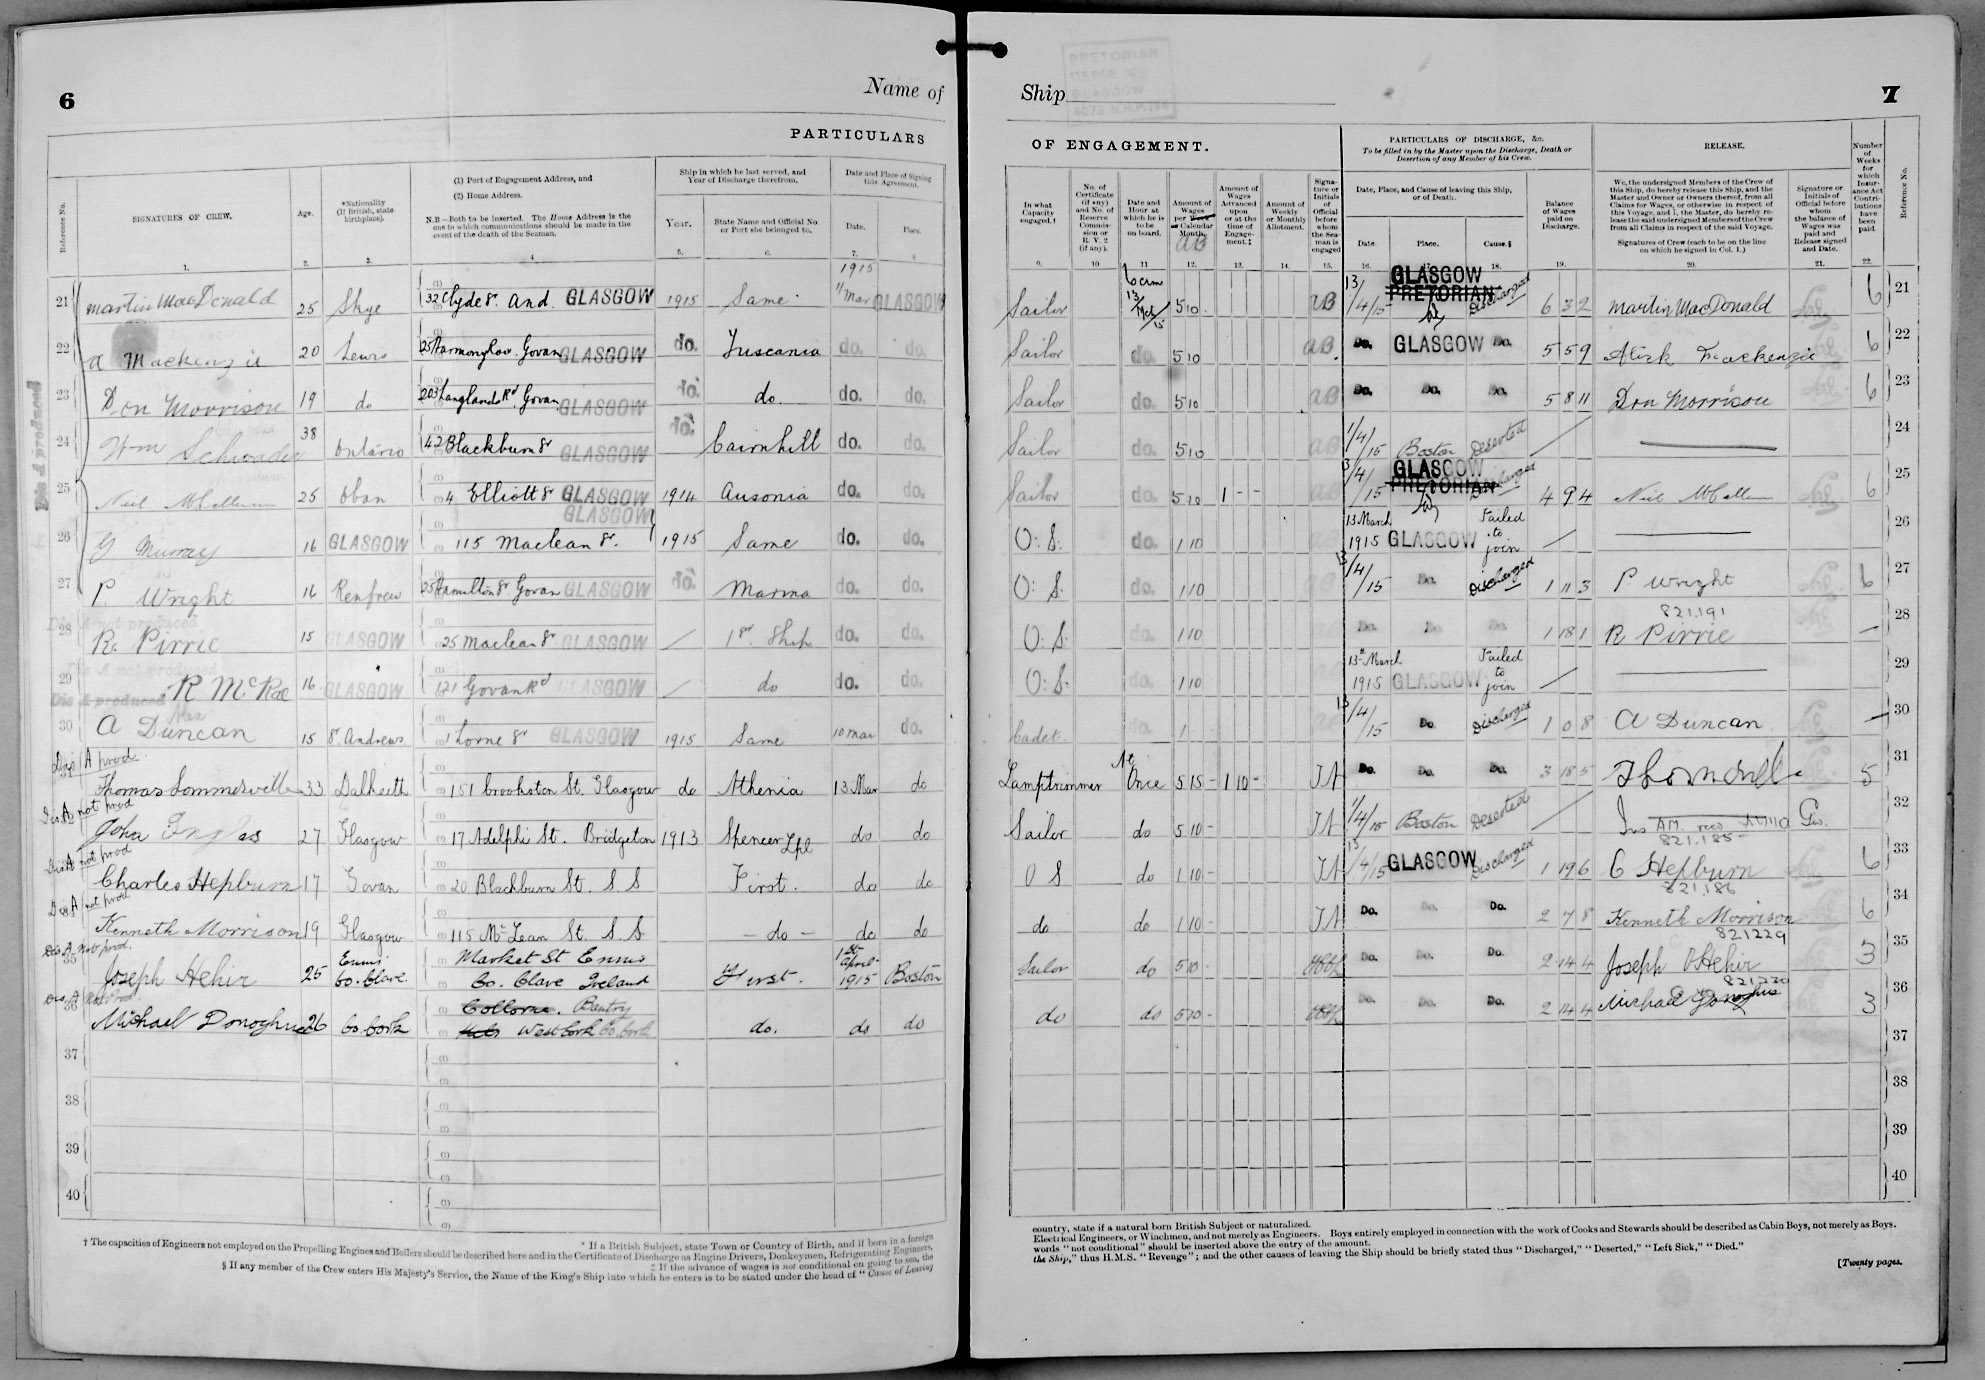 6
Name of
PARTICULARS
Reference No.
SIGNATURES OF CREW.
Age.
*Nationality (If British, state birthplace).
(1) Port of Engagement Address, and
(2) Home Address.
N.B—Both to be inserted. The Home Address is the one to which communications should be made in the event of the death of the Seaman.
Ship in which he last served, and Year of Discharge therefrom.
Year.
State Name and Official No or Port she belonged to.
Date and Place of Signing this Agreement.
Date.
Place.
1. 2. 3. 4 5. 6. 7. 8
1915
21 Martin MacDonald 25 Skye 32 Clyde St. And. GLASGOW 1915 Same 11 Mar GLASGOW
22 A Mackenzie 20 Lewis Govan GLASGOW do. Tuscania do. do.
Dis A produced
23 Don Morrison 19 do 203 Langlands Rd. Govan GLASGOW do. do. do. do.
24 Wm Schroader 38 Ontario 42 Blackburn St GLASGOW do. Cairnhill do. do.
25 Neil McCallum 25 Oban 4 Elliott St GLASGOW 1914 Ausonia do. do.
GLASGOW
26 G Murray 16 GLASGOW 115 Maclean St. 1915 Same do. do.
27 P. Wright 16 Renfrew 25 Hamilton St. Govan GLASGOW do. Marina do. do.
Dis A not produced
28 R. Pirrie 15 GLASGOW 25 Maclean St GLASGOW / 1st Ship do. do.
Dis A not produced
29 R McRae 16 GLASGOW 121 Govan Rd GLASGOW / do do. do.
Dis A produced
30 A Duncan 15 St. Andrews 1 Lorne St GLASGOW 1915 Same 10 Mar do.
Dis A prod
Thomas Sommerville 33 Dalkeith 151 Crookston St. Glasgow do Athenia 13 Mar do
Dis A not prod
John Inglis 27 Glasgow 17 Adelphi St. Bridgeton 1913 Spencer Lpl do do
Dis A not prod
Charles Hepburn 17 Govan 20 Blackburn St. S S First. do do
Dis A not prod
Kenneth Morrison 19 Glasgow 115 McLean St. S. S – do – do do
Dis A not prod.
35 Joseph Hehir 25 Ennis Co. Clare. Market St Ennis Co. Clare Ireland First. 1st April 1915 Boston
Dis A not Prod
36 Michael Donoghue 26 Co. Cork Bantry West Cork Co. Cork do. do do
37
38
39
40
* If a British Subject, state Town or Country of Birth, and if born in a foreign
† The capacities of Engineers not employed on the Propelling Engines and Boilers should be described here and in the Certificate of Discharge as Engine Drivers, Donkeymen, Refrigerating Engineers,
‡ If the advance of wages is not conditional on going to sea, the
§ If any member of the Crew enters His Majesty's Service, the Name of the King's Ship into which he enters is to be stated under the head of "Cause of Leaving
PRETORIAN
GLASGOW
Ship
7
OF ENGAGEMENT.
In what Capacity engaged.†
No. of Certificate (if any) and No. of Reserve Commission or R. V. 2 (if any).
Date and Hour at which he is to be on board.
Amount of Wages per Week or Calendar Month.
AB
Amount of Wages Advanced upon or at the time of Engagement.‡
Amount of Weekly or Monthly Allotment.
Signature or Initials of Official before whom the Seaman is engaged
PARTICULARS OF DISCHARGE, &c.
To be filled in by the Master upon the Discharge, Death or Desertion of any Member of his Crew.
Date, Place, and Cause of leaving this Ship, or of Death.
Date.
Place.
Cause.§
Balance of Wages paid on Discharge.
RELEASE.
We, the undersigned Members of the Crew of this Ship, do hereby release this Ship, and the Master and Owner or Owners thereof, from all Claims for Wages, or otherwise in respect of this Voyage, and I, the Master, do hereby release the said undersigned Members of the Crew from all Claims in respect of the said Voyage.
Signatures of Crew (each to be on the line on which he signed in Col. 1.)
Signature or Initials of Official before whom the balance of Wages was paid and Release signed and Date.
Number of Weeks for which Insurance Act Contributions have been paid.
Reference No.
9. 10 11 12. 13. 14. 15. 16. 17. 18. 19. 20. 21. 22.
Sailor 6 am 13/Mch/15 5 10. AB 13/4/15 GLASGOW PRETORIAN Discharged 6 3 2 Martin MacDonald 6 21
Sailor do. 5 10 AB Do. GLASGOW Do. 5 5 9 Alick Mackenzie 6 22
Sailor do. 5 10 AB Do. Do. Do. 5 8 11 Don Morrison 6 23
Sailor do. 5 10 AB 1/4/15 Boston Deserted / 24
Sailor do. 5 10 1 - - AB 13/4/15 GLASGOW PRETORIAN Discharged 4 9 4 Neil McCallum 6 25
O. S. do. 1 10 13 March 1915 GLASGOW Failed to join / 26
O. S. do. 1 10 AB 13/4/15 Do. Discharged 1 11 3 P Wright 6 27
821,191
O. S. do. 1 10 AB Do. Do. Do. 1 18 1 R Pirrie – 28
O. S. do. 1 10 13th March 1915 GLASGOW Failed to join / 29
Cadet. do. 1 13/4/15 Do Discharged 1 0 8 A Duncan – 30
Lamptrimmer At Once 5 15 - 1 10 - Do. Do. Do. 3 18 5 5 31
Sailor do 5 10 - 1/4/15 Boston Deserted / 32
821,185
O S do 1 10 - 13/4/15 GLASGOW Discharged 1 19 6 C Hepburn 6 33
821,186
do do 1 10 - Do. Do. Do. 2 7 8 Kenneth Morrison 6 34
821229
Sailor do 5 10 - Do. Do. Do. 2 14 4 Joseph O'Hehir 3 35
821220
do do 5 10 - Do. Do. Do. 2 14 4 Michael Donoghue 3 36
37
38
39
40
country, state if a natural born British Subject or naturalized.
Electrical Engineers, or Winchmen, and not merely as Engineers. Boys entirely employed in connection with the work of Cooks and Stewards should be described as Cabin Boys, not merely as Boys.
words "not conditional" should be inserted above the entry of the amount.
the Ship," thus H.M.S. "Revenge"; and the other causes of leaving the Ship should be briefly stated thus "Discharged," "Deserted," "Left Sick," "Died."
[Twenty pages.